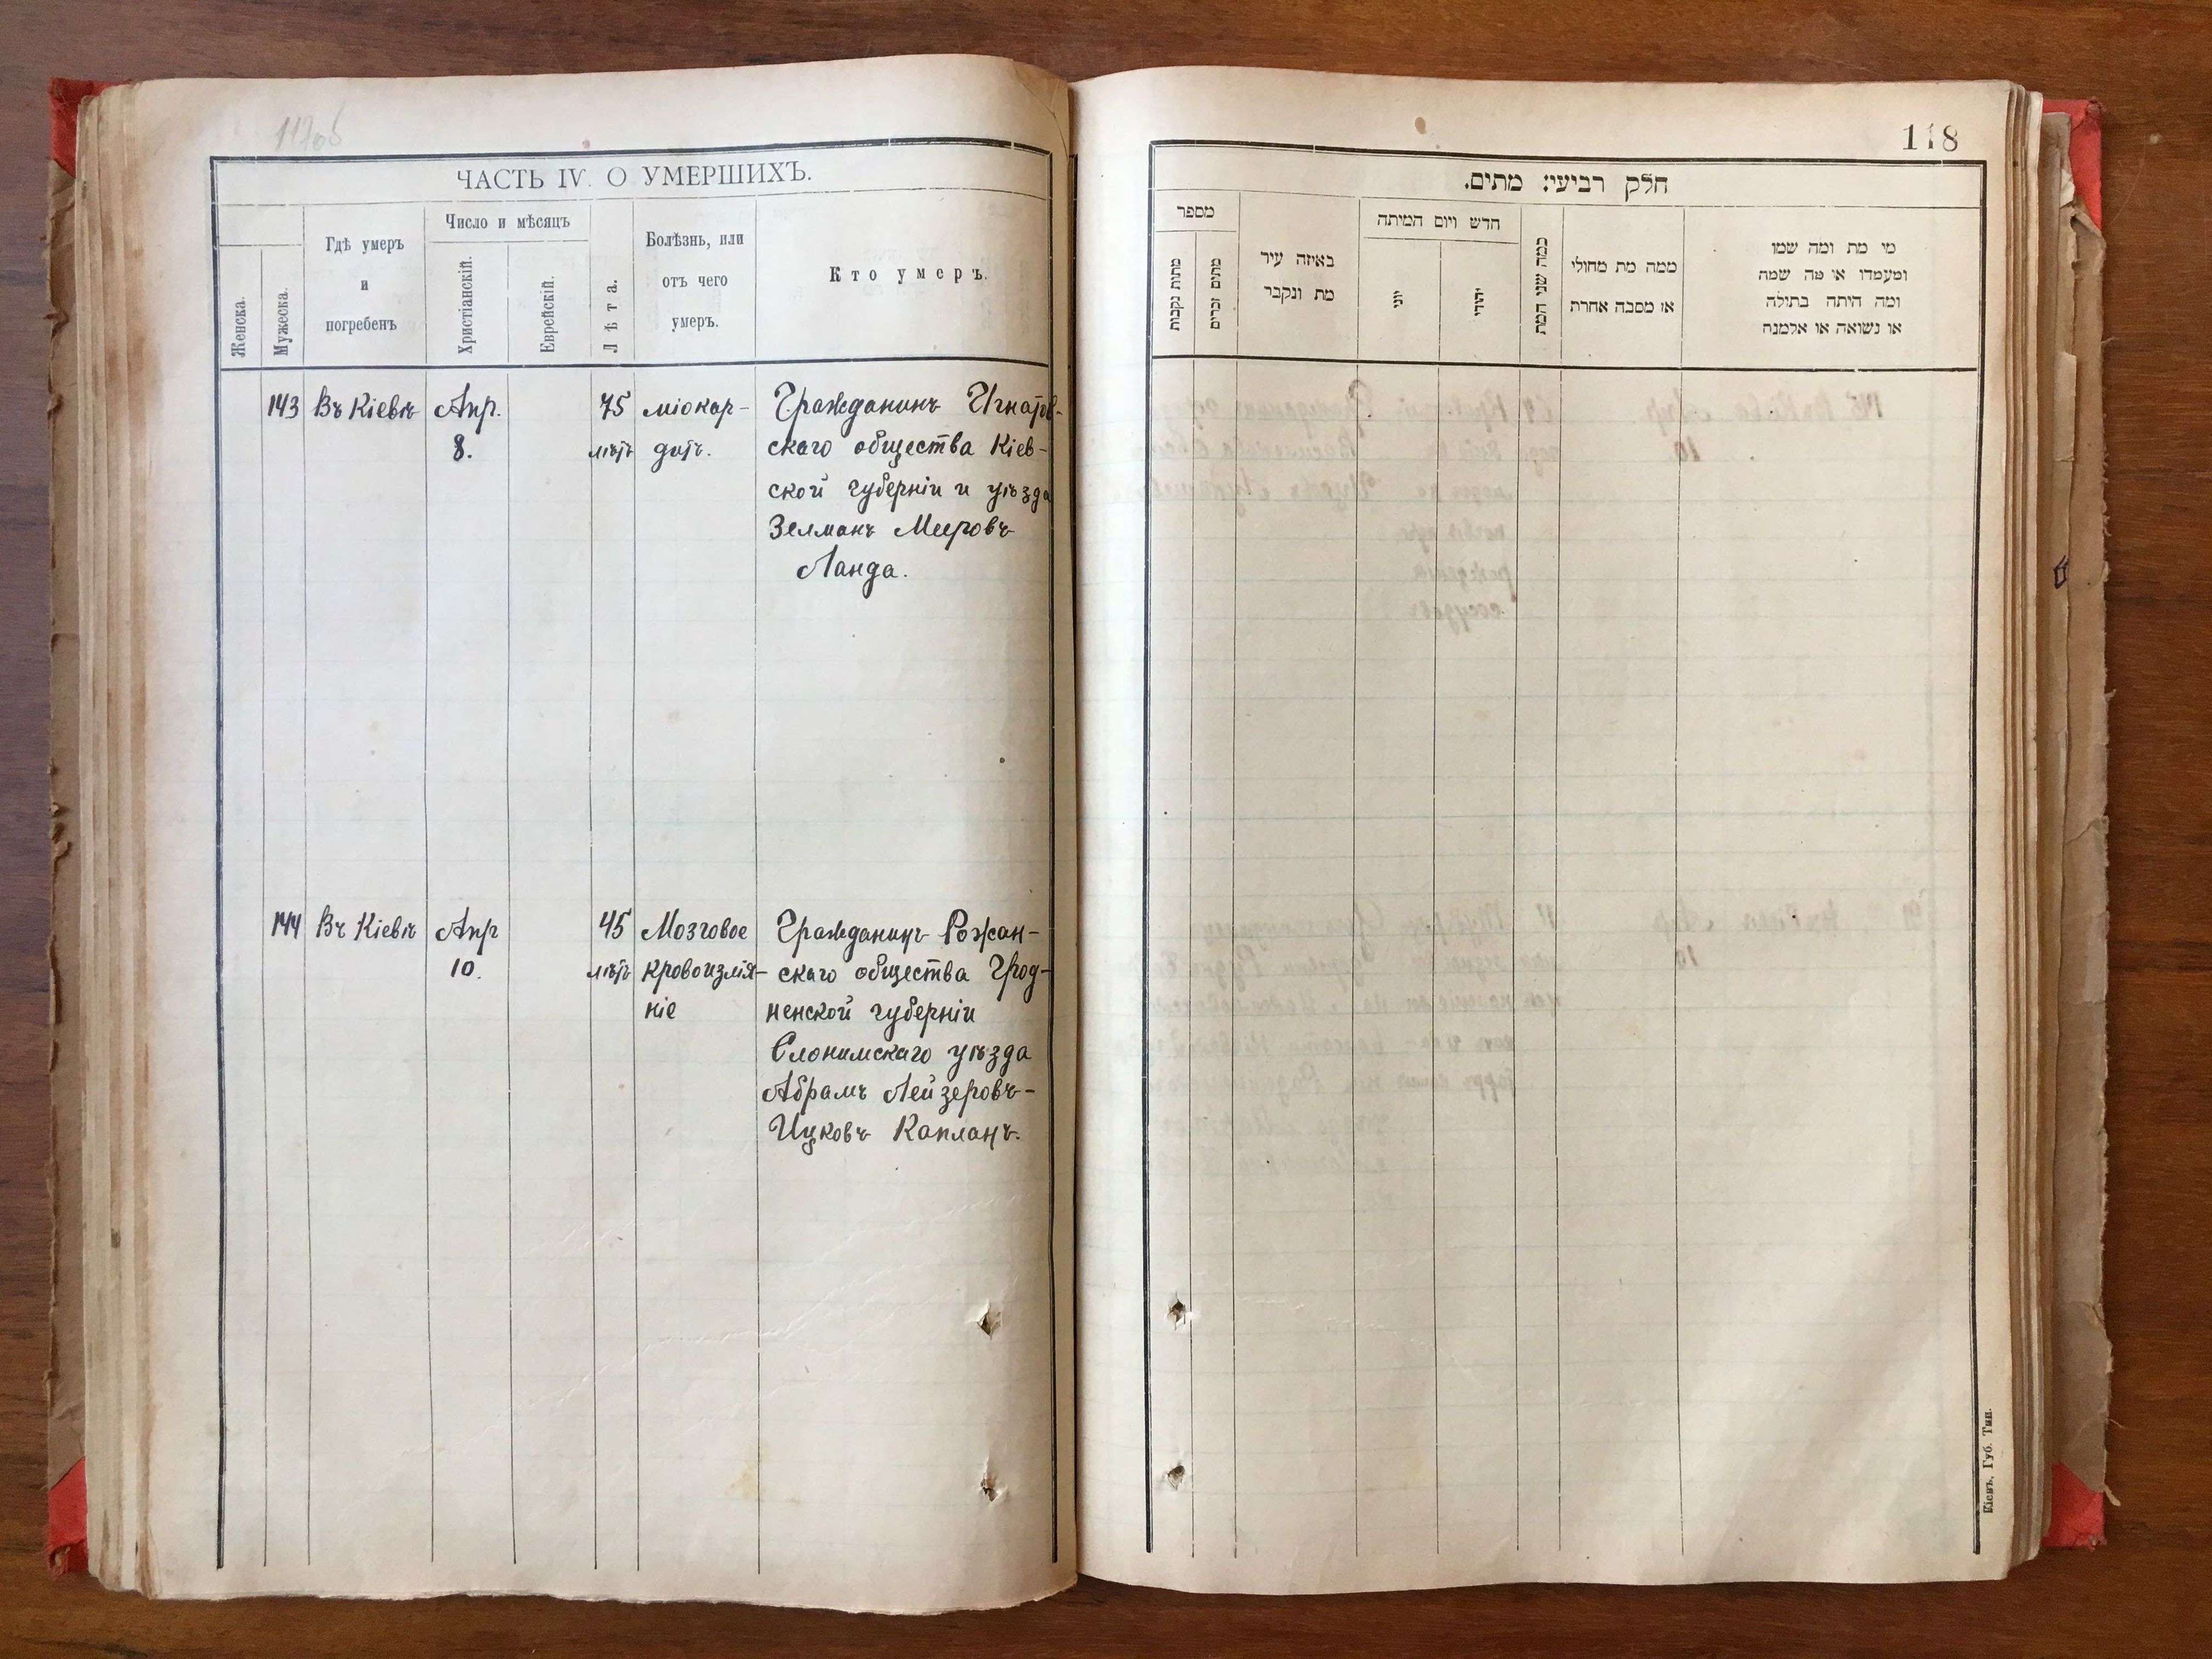 117об
ЧАСТЬ IV. О УМЕРШИХЪ.
Женска.
Мужеска.
Гдѣ умеръ
и
погребенъ
Число и мѣсяцъ
Христіанскій.
Еврейскій.
Лѣта.
Болѣзнь, или
отъ чего
умеръ.
Кто умеръ.
143 Въ Кіевѣ Апр. 75 міокар- Гражданинъ Игнатов-
8. лѣтъ дитъ. скаго общества Кіев-
ской губерніи и уѣзда
Зелманъ Мееровъ
Ланда.
144 Въ Кіевѣ Апр 45 Мозговое Гражданинъ Рожан-
10. лѣтъ кровоизлія- скаго общества Грод-
ніе ненской губерніи
Слонимскаго уѣзда
Абрамъ Лейзеровъ-
Ицковъ Капланъ.
118
חלק רביעי: מתים.
מספר
מתות נקבות
מתים זכרים
באיזה עיר
מת ונקבר
חדש ויום המיתה
יוני
יהודי
כמה שני המת
ממה מת מחולי
או מסבה אחרת
מי מת ומה שמו
ומעמדו או מה שמה
ומה היתה בתולה
או נשואה או אלמנה
Кіевъ, Губ. Тип.